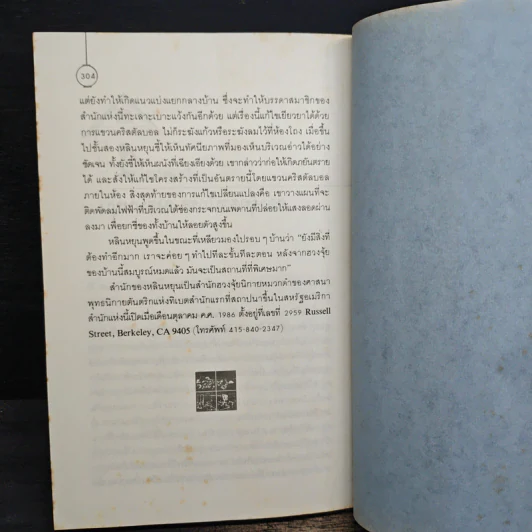 304
แต่ยังทำให้เกิดแนวแบ่งแยกกลางบ้าน ซึ่งจะทำให้บรรดาสมาชิกของ
สำนักแห่งนี้ทะเลาะเบาะแว้งกันอีกด้วย แต่เรื่องนี้แก้ไขเยียวยาได้ด้วย
การแขวนคริสตัลบอล ไม่ก็ระฆังแก้วหรือระฆังลมไว้ที่ห้องโถง เมื่อขึ้น
ไปชั้นสองหลินหยุนชี้ให้เห็นทัศนียภาพที่มองเห็นบริเวณอ่าวได้อย่าง
ชัดเจน ทั้งยังชี้ให้เห็นผนังที่เฉียงเอียงด้วย เขากล่าวว่าก่อให้เกิดภยันตราย
ได้ และสั่งให้แก้ไขโครงสร้างที่เป็นอันตรายนี้โดยแขวนคริสตัลบอล
ภายในห้อง สิ่งสุดท้ายของการแก้ไขเปลี่ยนแปลงคือ เขาวางแผนที่จะ
ติดพัดลมไฟฟ้าที่บริเวณใต้ช่องกระจกบนเพดานที่ปล่อยให้แสงลอดผ่าน
ลงมา เพื่อยกชี่ของทั้งบ้านให้ลอยตัวสูงขึ้น
หลินหยุนพูดขึ้นในขณะที่เหลียวมองไปรอบๆ บ้านว่า "ยังมีสิ่งที่
ต้องทำอีกมาก เราจะค่อยๆ ทำไปทีละขั้นทีละตอน หลังจากฮวงจุ้ย
ของบ้านนี้สมบูรณ์หมดแล้ว มันจะเป็นสถานที่ที่พิเศษมาก"
สำนักของหลินหยุนเป็นสำนักฮวงจุ้ยนิกายหมวกดำของศาสนา
พุทธนิกายตันตริกแห่งทิเบตสำนักแรกที่สถาปนาขึ้นในสหรัฐอเมริกา
สำนักแห่งนี้เปิดเมื่อเดือนตุลาคม ค.ศ. 1986 ตั้งอยู่ที่เลขที่ 2959 Russell
Street, Berkeley, CA 9405 (โทรศัพท์ 415-840-2347)